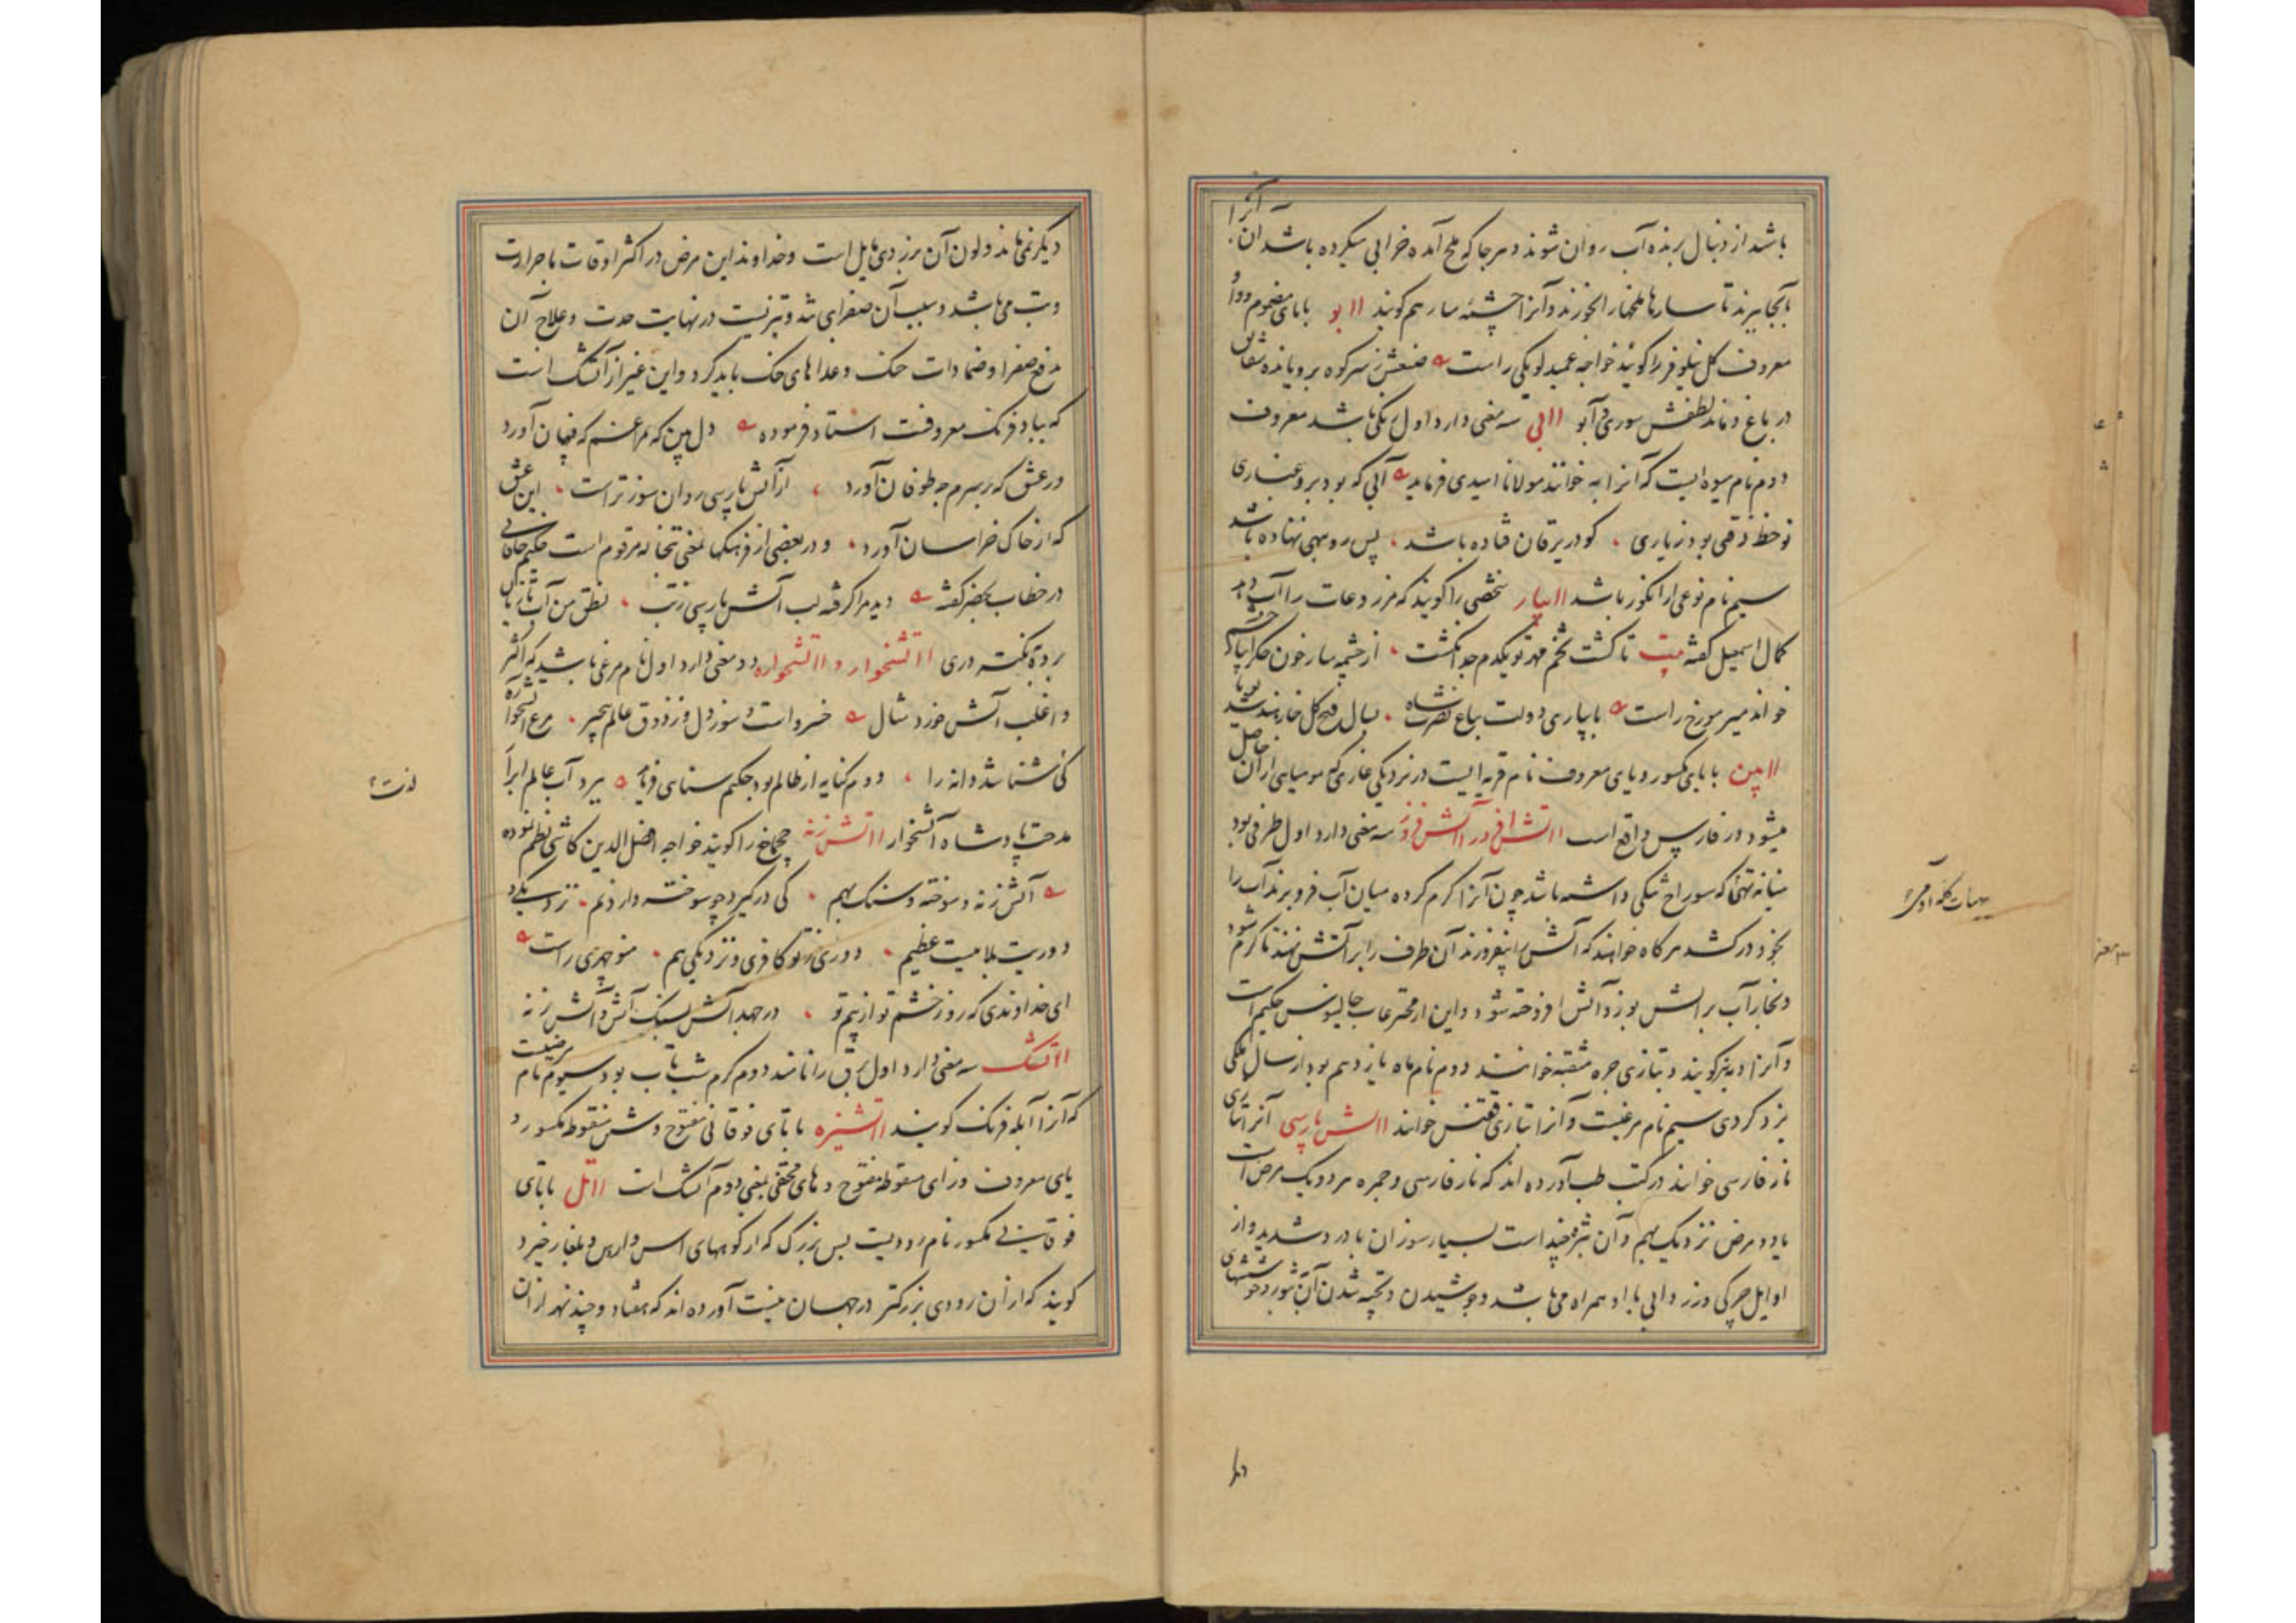 باشد از دنبال برنده آب روان شوند و هر جا که ملخ آمده خرابی میکرده باشد آن آنرا
بآنجا برند تا سارها ملخها را بخورند و آنرا چشمه سار هم کویند ااابو بابای مضموم و واو
معروف کل نیلوفر را کویند خواجه عمید لوبکی راست صنعش ز سر کوه برویانده شقایق
در باغ دماند لطفش سوری و آبو ااابی سه معنی دارد اول رنکی باشد معروف
دوم نام میوه ایست که آنرا به خوانند مولانا امیدی فرماید آبی که بود برو غباری
نو خط ذقنی بود ز یاری کو در یرقان فتاده باشد پس رو ببهی نهاده باشد
سیم نام نوعی از انکور باشد ااابیار شخصی را کویند که مزروعات را آب دهد
کمال اسمعیل کفته بیت تا کشت تخم مهر تو یکدم جدا نکشت از چشمه سار خون جکر آبیار چشم
خواند میر مورخ راست بابیاری دولت بباغ نصرت شاه بسال فتح کل خار بند شد بویا
ااابین بابای مکسور و یای معروف نام قریه ایست در نزدیکی غاری که مومیایی از آن حاصل
میشود در فارس واقع است آآتش افروز و آآتش فروز سه معنی دارد اول ظرفی بود
میانه تهی که سوراخ تنکی داشته باشد چون آنرا کرم کرده میان آب فرو برند آب را
بخود در کشد هر کاه خواهند که آتش را بیفروزند آن ظرف را بر آتش نهند تا کرم شود
و بخار آب بر آتش بوزد و آتش افروخته شود و این از مخترعات جالینوس حکیم است
و آنرا دمه نیز کویند و بتازی جره مثقبه خوانند دوم نام ماه یازدهم بود از سال ملکی
یزد کردی سیم نام مرغیست و آنرا بتازی ققنس خوانند آآتش پارسی آنرا بتازی
نار فارسی خوانند در کتب طب آورده اند که نار فارسی و جمره هر دو یک مرض است
یا دو مرض نزدیک بهم و آن بثره چند است بسیار سوزان با درد شدید و از
اوایل چرکی و زرد آبی با او همراه می باشد و جوشیدن و پخته شدن آن بثور در خوششهای
دیکر نمی ماند و لون آن بزردی مایل است و خداوند این مرض در اکثر اوقات با حرارت
و تب می باشد و سبب آن صفرای تند و تیز نیست در نهایت حدت و علاج آن
بدفع صفرا و ضمادات خنک و غذا های خنک باید کرد و این غیر از آتشک است
که بباد فرنک معروفست استاد فرموده دل بین که مرا غم که بفغان آورد
در عشق که بر سرم چه طوفان آورد از آتش پارسی روان سوزتر است این عشق
که از خاک خراسان آورد و در بعضی از فرهنکها بمعنی تبخاله مرقوم است حکیم خاقانی
در خطاب بخضر کفته دید مرا کرفته لب آتش پارسی ز تب نطق من آب تازیان
برده بنکته دری آآتشخوار و آآتشخواره دو معنی دارد اول نام مرغی باشد که اکثر
و اغلب آتش خورد مثال خسروا ست و سوز دل و ز ذوق عالم بیخبر مرغ آتشخواره
کی شناسد دانه را دوم کنایه از ظالم بود حکیم سنای فرماید ببرد آب عالم ابرار
مدحت پادشاه آتشخوار آآتش زنه چخماق را کویند خواجه افضل الدین کاشی نظم نموده
آتش زنه و سوخته و سنک بهم کی در کیرد چو سوخته دارد نم نزدیکی
دوریت بلاییست عظیم دوری ز تو کافری و نزدیکی هم منوچهری راست
ای خداوندی که روز خشم تو از بیم تو در جهد آتش بسنک آتش و آتش زنه
آآتشک سه معنی دارد اول برق را نامند دوم کرم شب تاب بود سیوم نام مرضیست
که آنرا آبله فرنک کویند آآتشیزه با تای فوقانی مفتوح و شین منقوط مکسور و
یای معروف و زای منقوطه مفتوح و های مختفی بمعنی دوم آتشک است آآتل با تای
فوقانی مکسور نام رودیست بس بزرک که از کوههای اس و اروس و بلغار خیزد
کویند که از آن رودی بزرکتر در جهان نیست آورده اند که هفتاد و چند نهر از آن